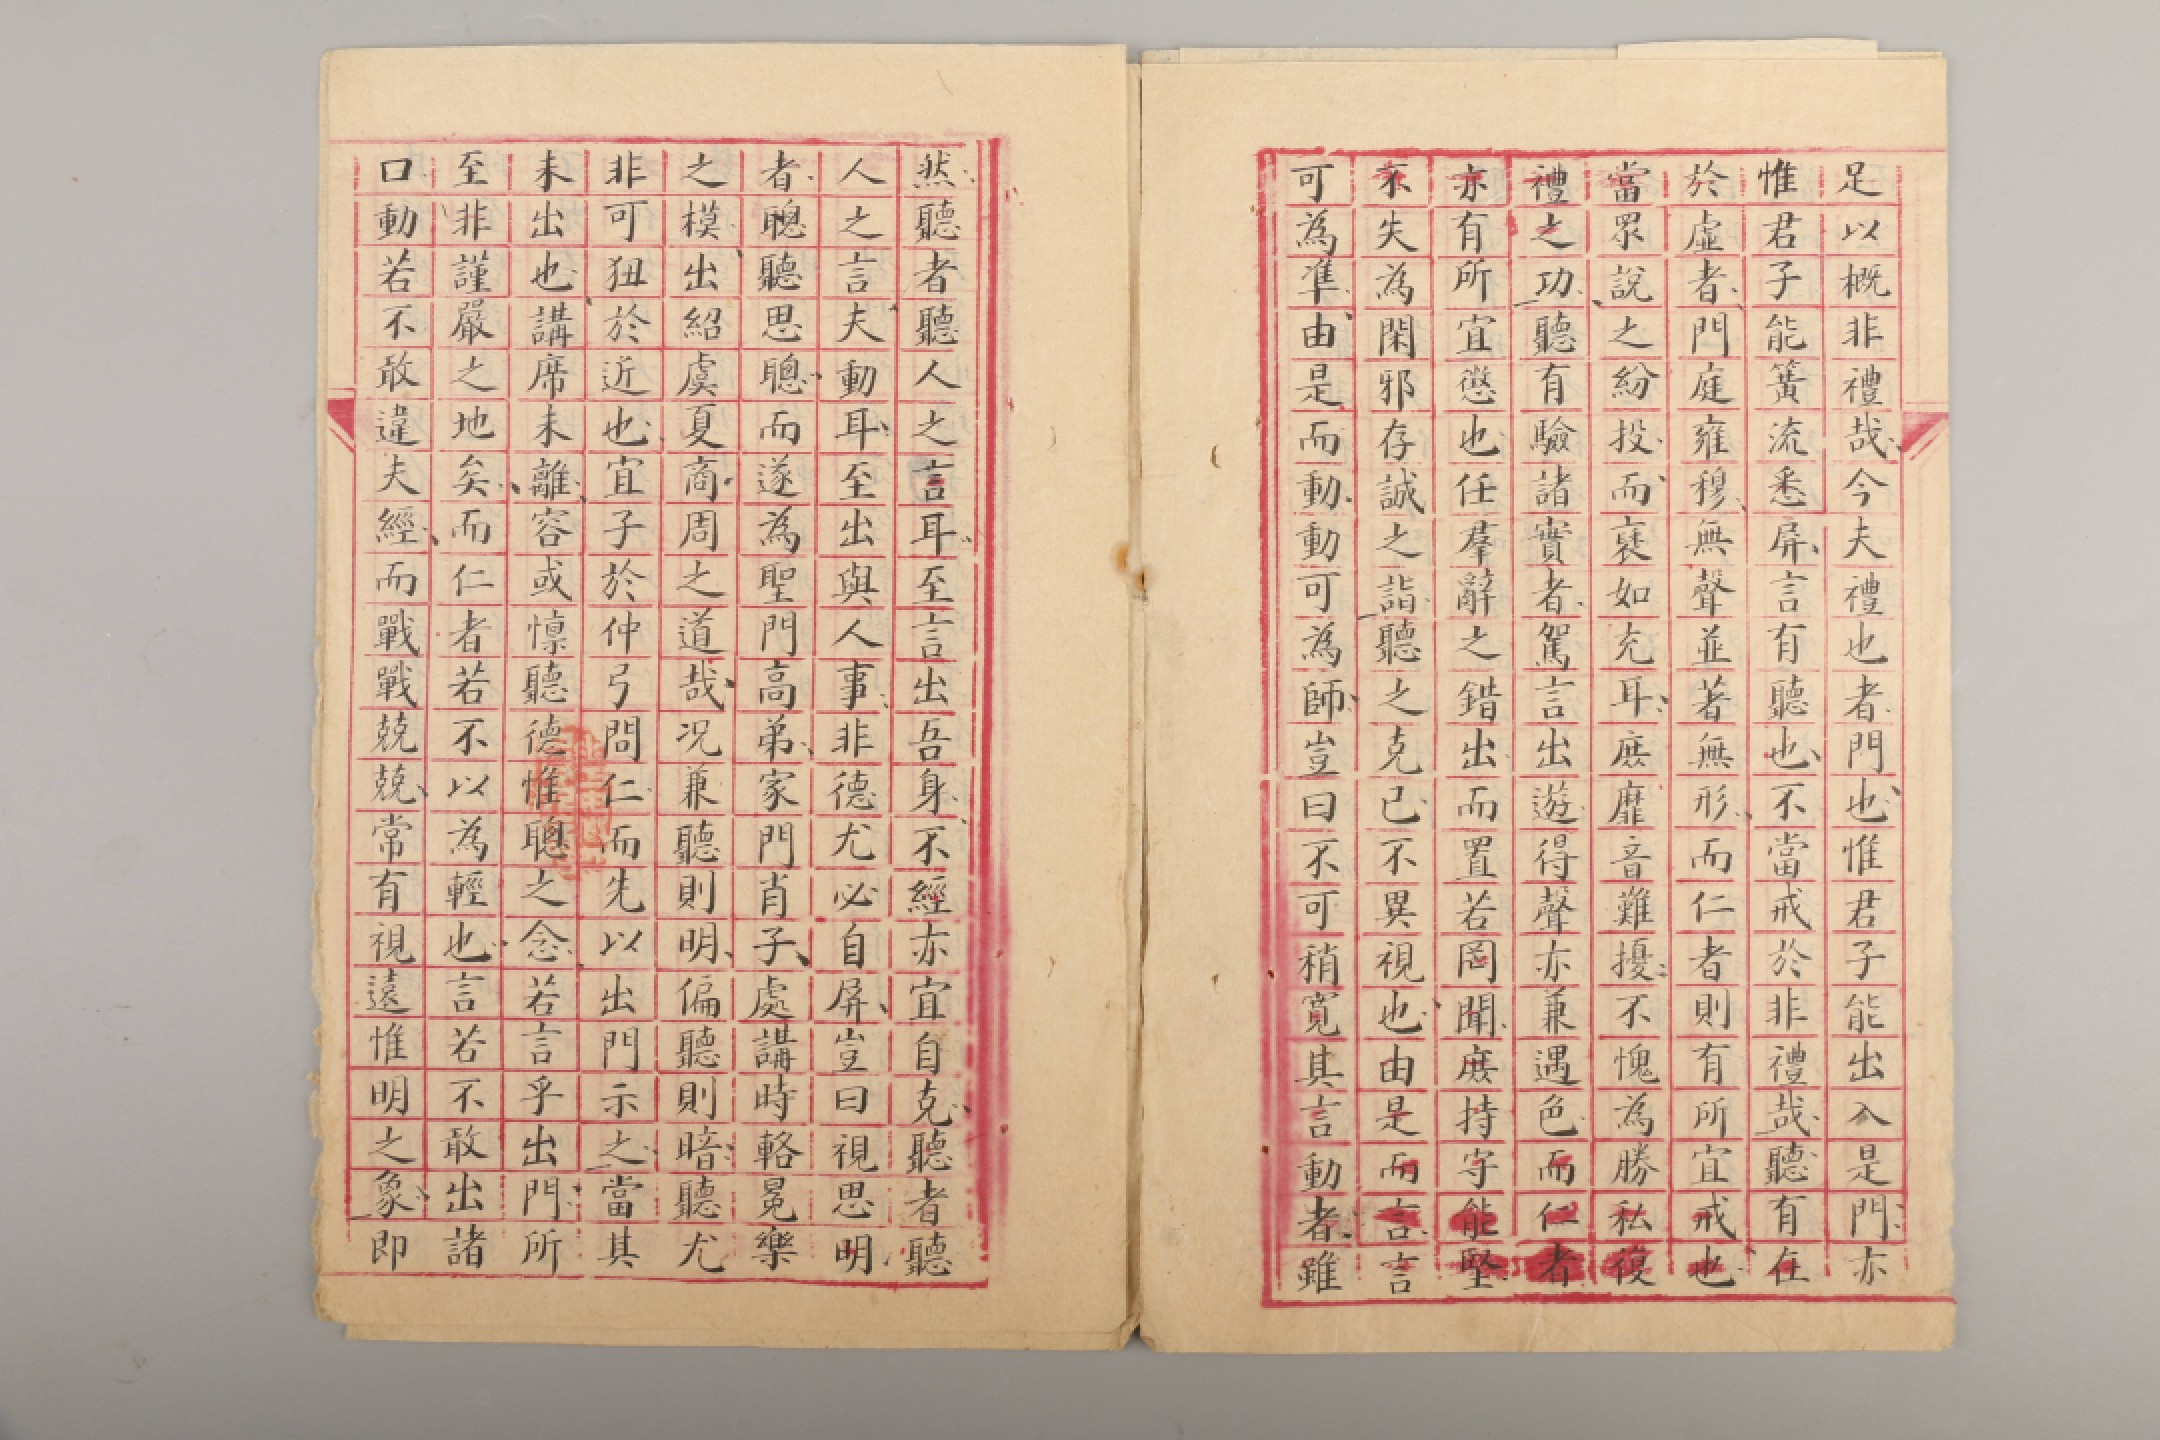 足以概非禮哉今夫禮也者門也惟君子能出入是門亦
惟君子能簧流悉屏言有聽也不當戒於非禮哉聽有在
於虛者門庭雍穆無聲並著無形而仁者則有所宜戒也
當眾說之紛投而裒如充耳庶靡音難擾不愧為勝私復
禮之功聽有驗諸實者駕言出遊得聲亦兼遇色而仁者
亦有所宜懲也任羣辭之錯出而置若罔聞庶持守能堅
不失為閑邪存誠之詣聽之克己不異視也由是而言言
可為準由是而動動可為師豈曰不可稍寬其言動者雖
然聽者聽人之言耳至言出吾身不經亦宜自克聽者聽
人之言夫動耳至出與人事非德尤必自屏豈曰視思明
者聰聽思聰而遂為聖門高弟家門肖子處講時輅冕樂
之模出紹虞夏商周之道哉况兼聽則明偏聽則暗聽尤
非可狃於近也宜子於仲弓問仁而先以出門示之當其
未出也講席未離容或懍聽德惟聰之念若言乎出門所
至非謹嚴之地矣而仁者若不以為輕也言若不敢出諸
口動若不敢違夫經而戰戰兢兢常有視遠惟明之象即